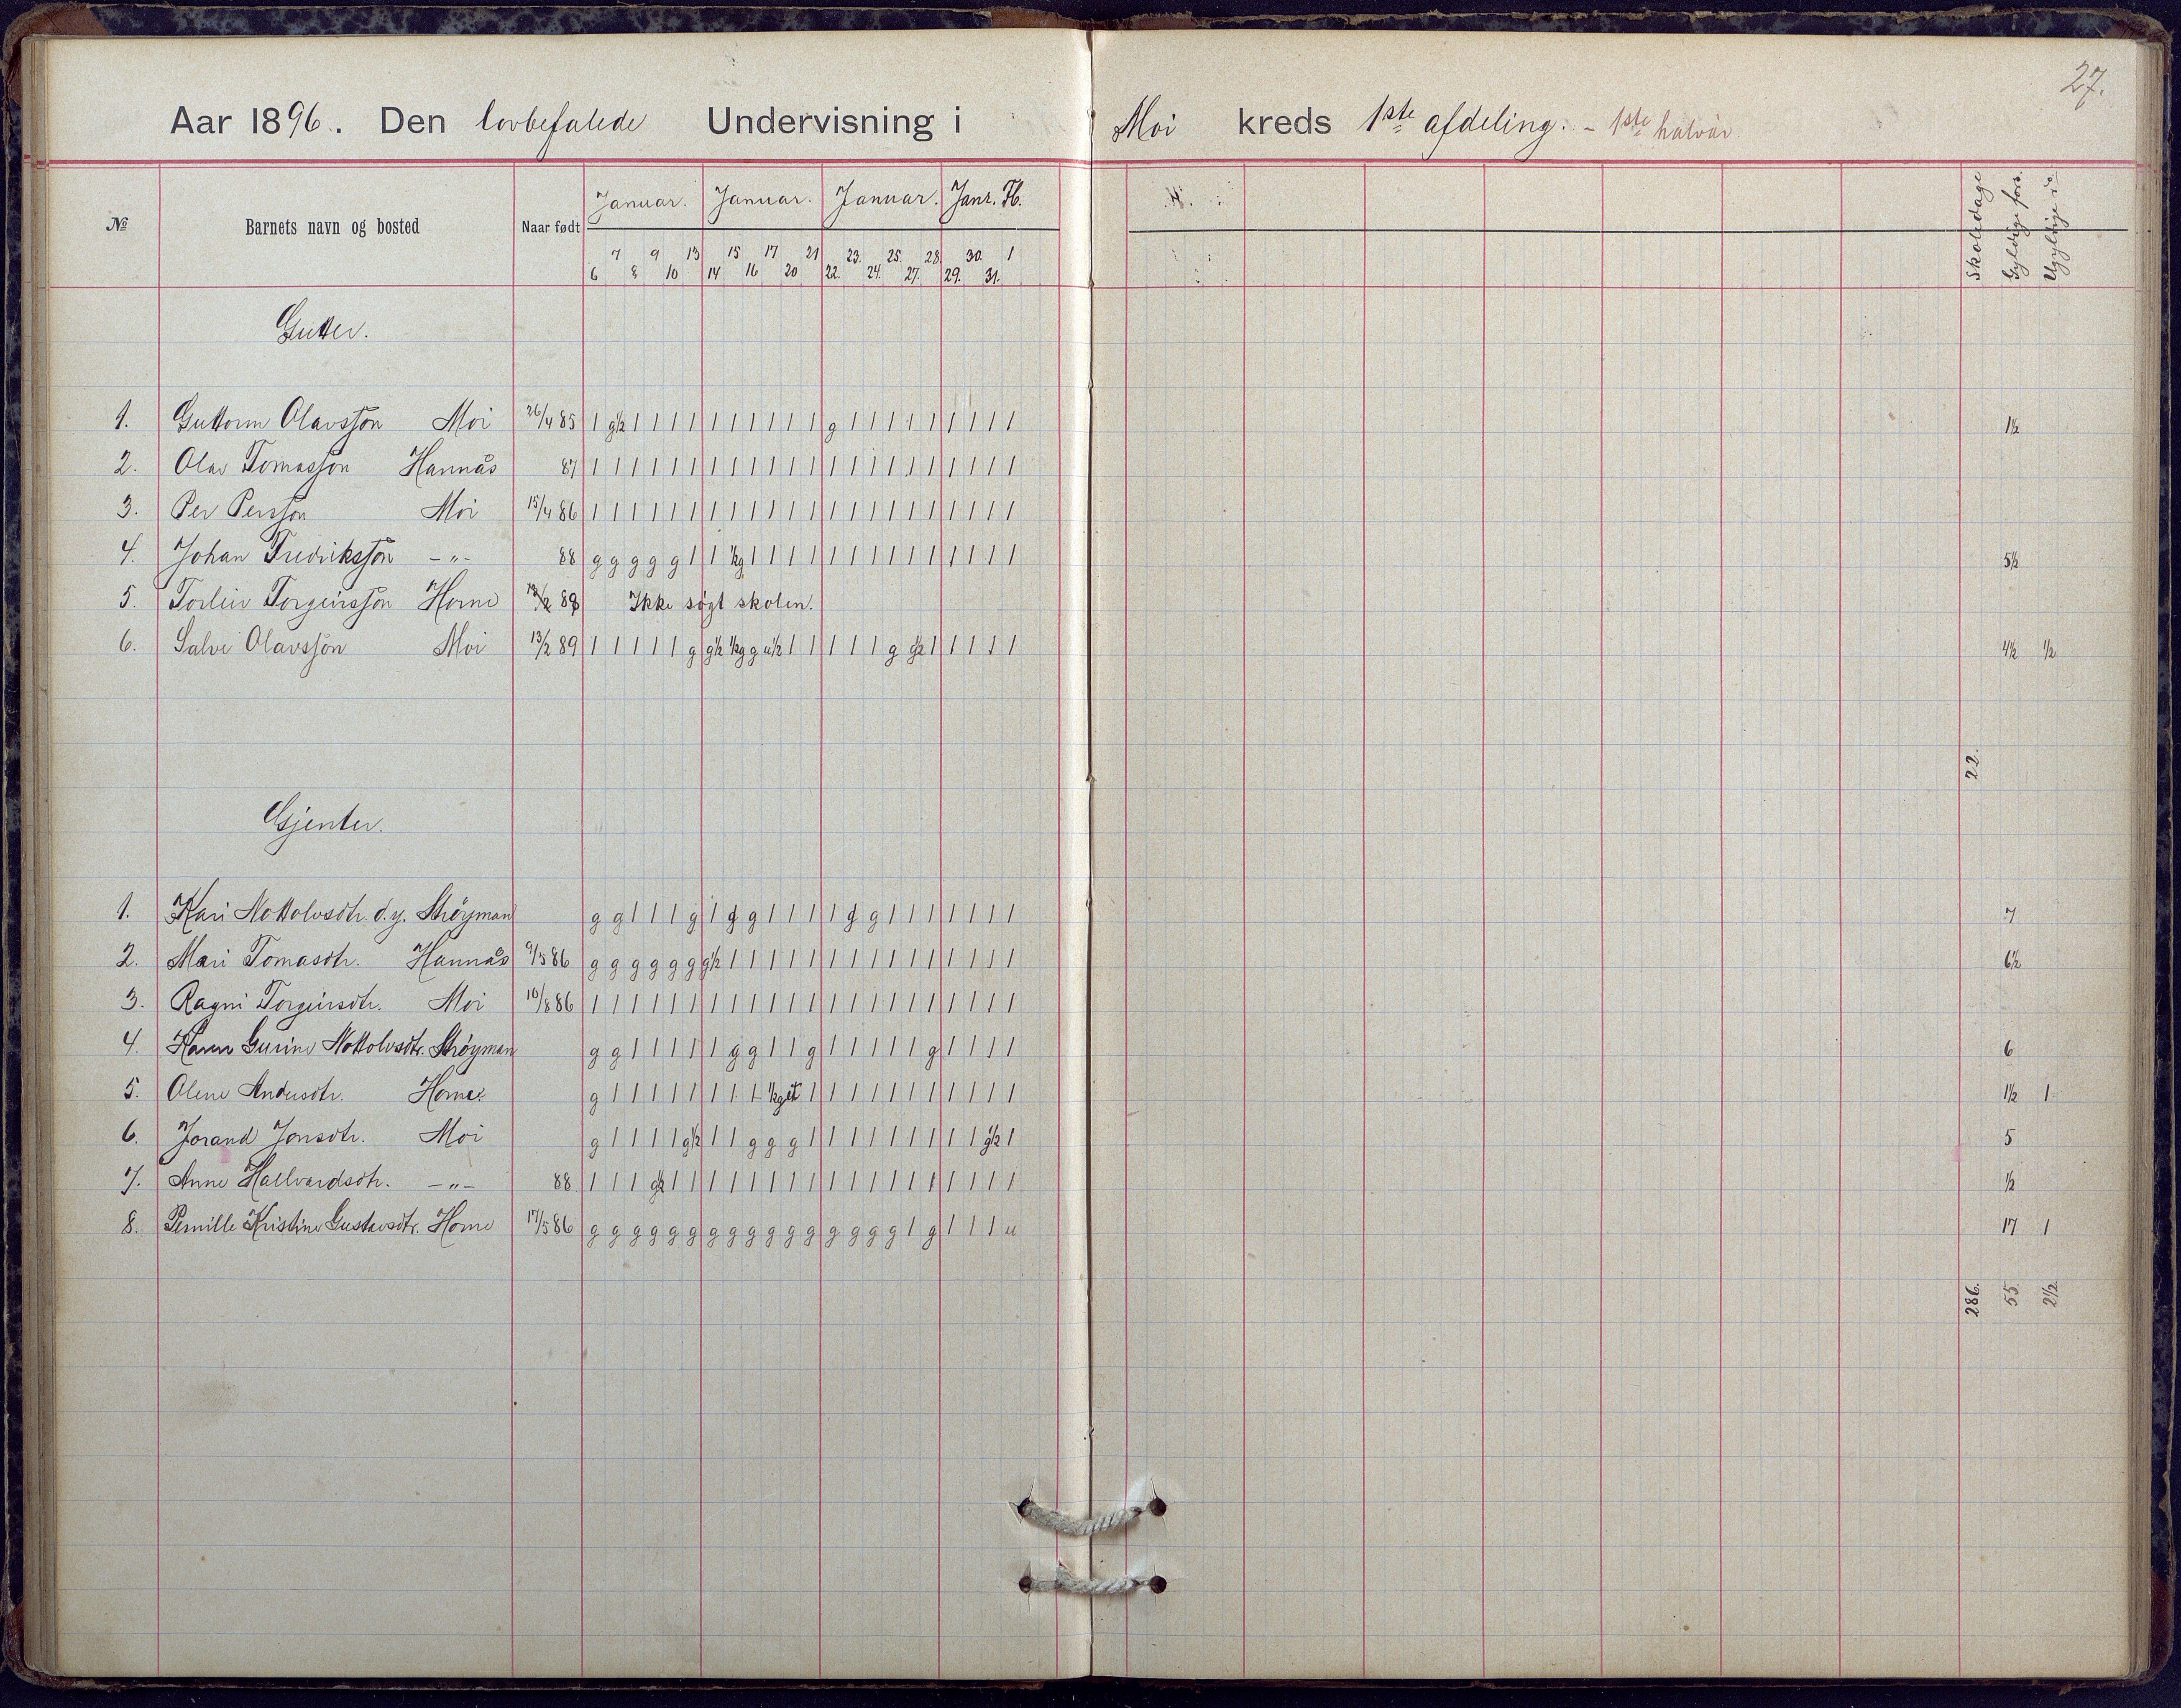 27.
Aar 1896. Den lovbefalede Undervisning i Moi kreds 1ste afdeling. - 1ste halvår
№ Barnets navn og bosted Naar født Januar. Januar. Januar. Janr. Fb. Skoledage Gyldige fors. Ugyldige do
7 9 13 15 17 21 23. 25. 28. 30. 1
6 8 10 14 16 20 22. 24. 27. 29. 31.
Gutter.
1. Guttorm Olavssøn Moi 26/4 85 1 g½ 1 1 1 1 1 1 1 1 1 1 g 1 1 1 1 1 1 1 1 1 1½
2. Olav Tomassøn Hannås 87 1 1 1 1 1 1 1 1 1 1 1 1 1 1 1 1 1 1 1 1 1 1
3. Per Perssøn Moi 15/4 86 1 1 1 1 1 1 1 1 1 1 1 1 1 1 1 1 1 1 1 1 1 1
4. Johan Fredrikssøn -"- 88 g g g g g 1 1 ½g 1 1 1 1 1 1 1 1 1 1 1 1 1 1 5½
5. Torleiv Torgeirssøn Horne 89 Ikke søgt skolen.
6. Salve Olavssøn Moi 13/2 89 1 1 1 1 1 g g½ ½g g u½ 1 1 1 1 1 g g½ 1 1 1 1 1 4½ ½
22.
Gjenter.
1. Kari Nottolvsdtr. d.y. Strøyman g g 1 1 1 g 1 g g 1 1 1 1 g g 1 1 1 1 1 1 1 7
2. Mari Tomasdtr. Hannås 9/5 86 g g g g g g g½ 1 1 1 1 1 1 1 1 1 1 1 1 1 1 1 6½
3. Ragni Torgeirsdtr. Moi 16/8 86 1 1 1 1 1 1 1 1 1 1 1 1 1 1 1 1 1 1 1 1 1 1
4. Karen Gurine Nottolvsdtr. Strøyman g g 1 1 1 1 1 g g 1 1 g 1 1 1 1 1 g 1 1 1 1 6
5. Olene Andersdtr. Horne g 1 1 1 1 1 1 1 1 ½g 1 1 1 1 1 1 1 1 1 1 1 1½ 1
6. Jorand Jonsdtr. Moi g 1 1 1 1 g½ 1 1 g g g 1 1 1 1 1 1 1 1 1 g½ 1 5
7. Anne Hallvardsdtr. -"- 88 1 1 1 g½ 1 1 1 1 1 1 1 1 1 1 1 1 1 1 1 1 1 1 ½
8. Pernille Kristine Gustavsdtr. Horne 17/5 86 g g g g g g g g g g g g g g g g 1 g 1 1 1 u 17 1
286. 55. 2½